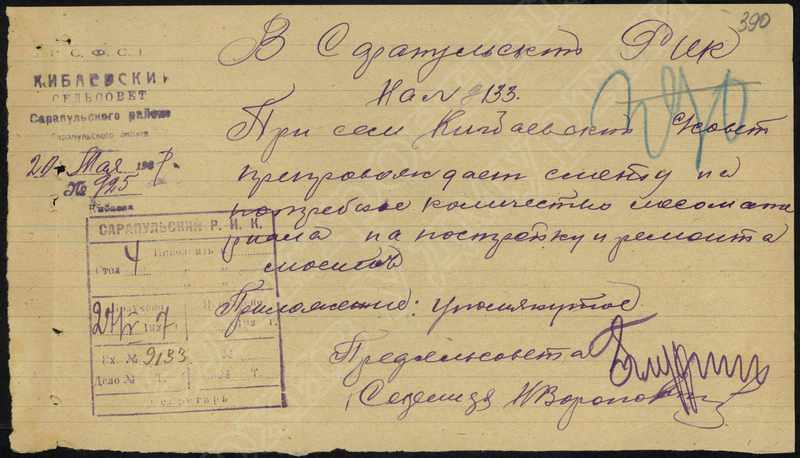 390
Р. С. Ф. С. Р.
КИБАЕВСКИЙ
СЕЛЬСОВЕТ
Сарапульского района
Сарапульского округа
20 Мая 1927 г.
№ 925
Кибаево
В Сарапульский Рик
На № 9133.
При сем Кибаевский Совет
препровождает смету на
потребное количество лесомате
риала на постройку и ремонта
мостов
Приложение: упомянутое
Предсельсовета
Секретарь
САРАПУЛЬСКИЙ Р. И. К.
Стол 4 Исполнить
Получено
24/V 7
Вх. № 9133
Дело №
Секретарь